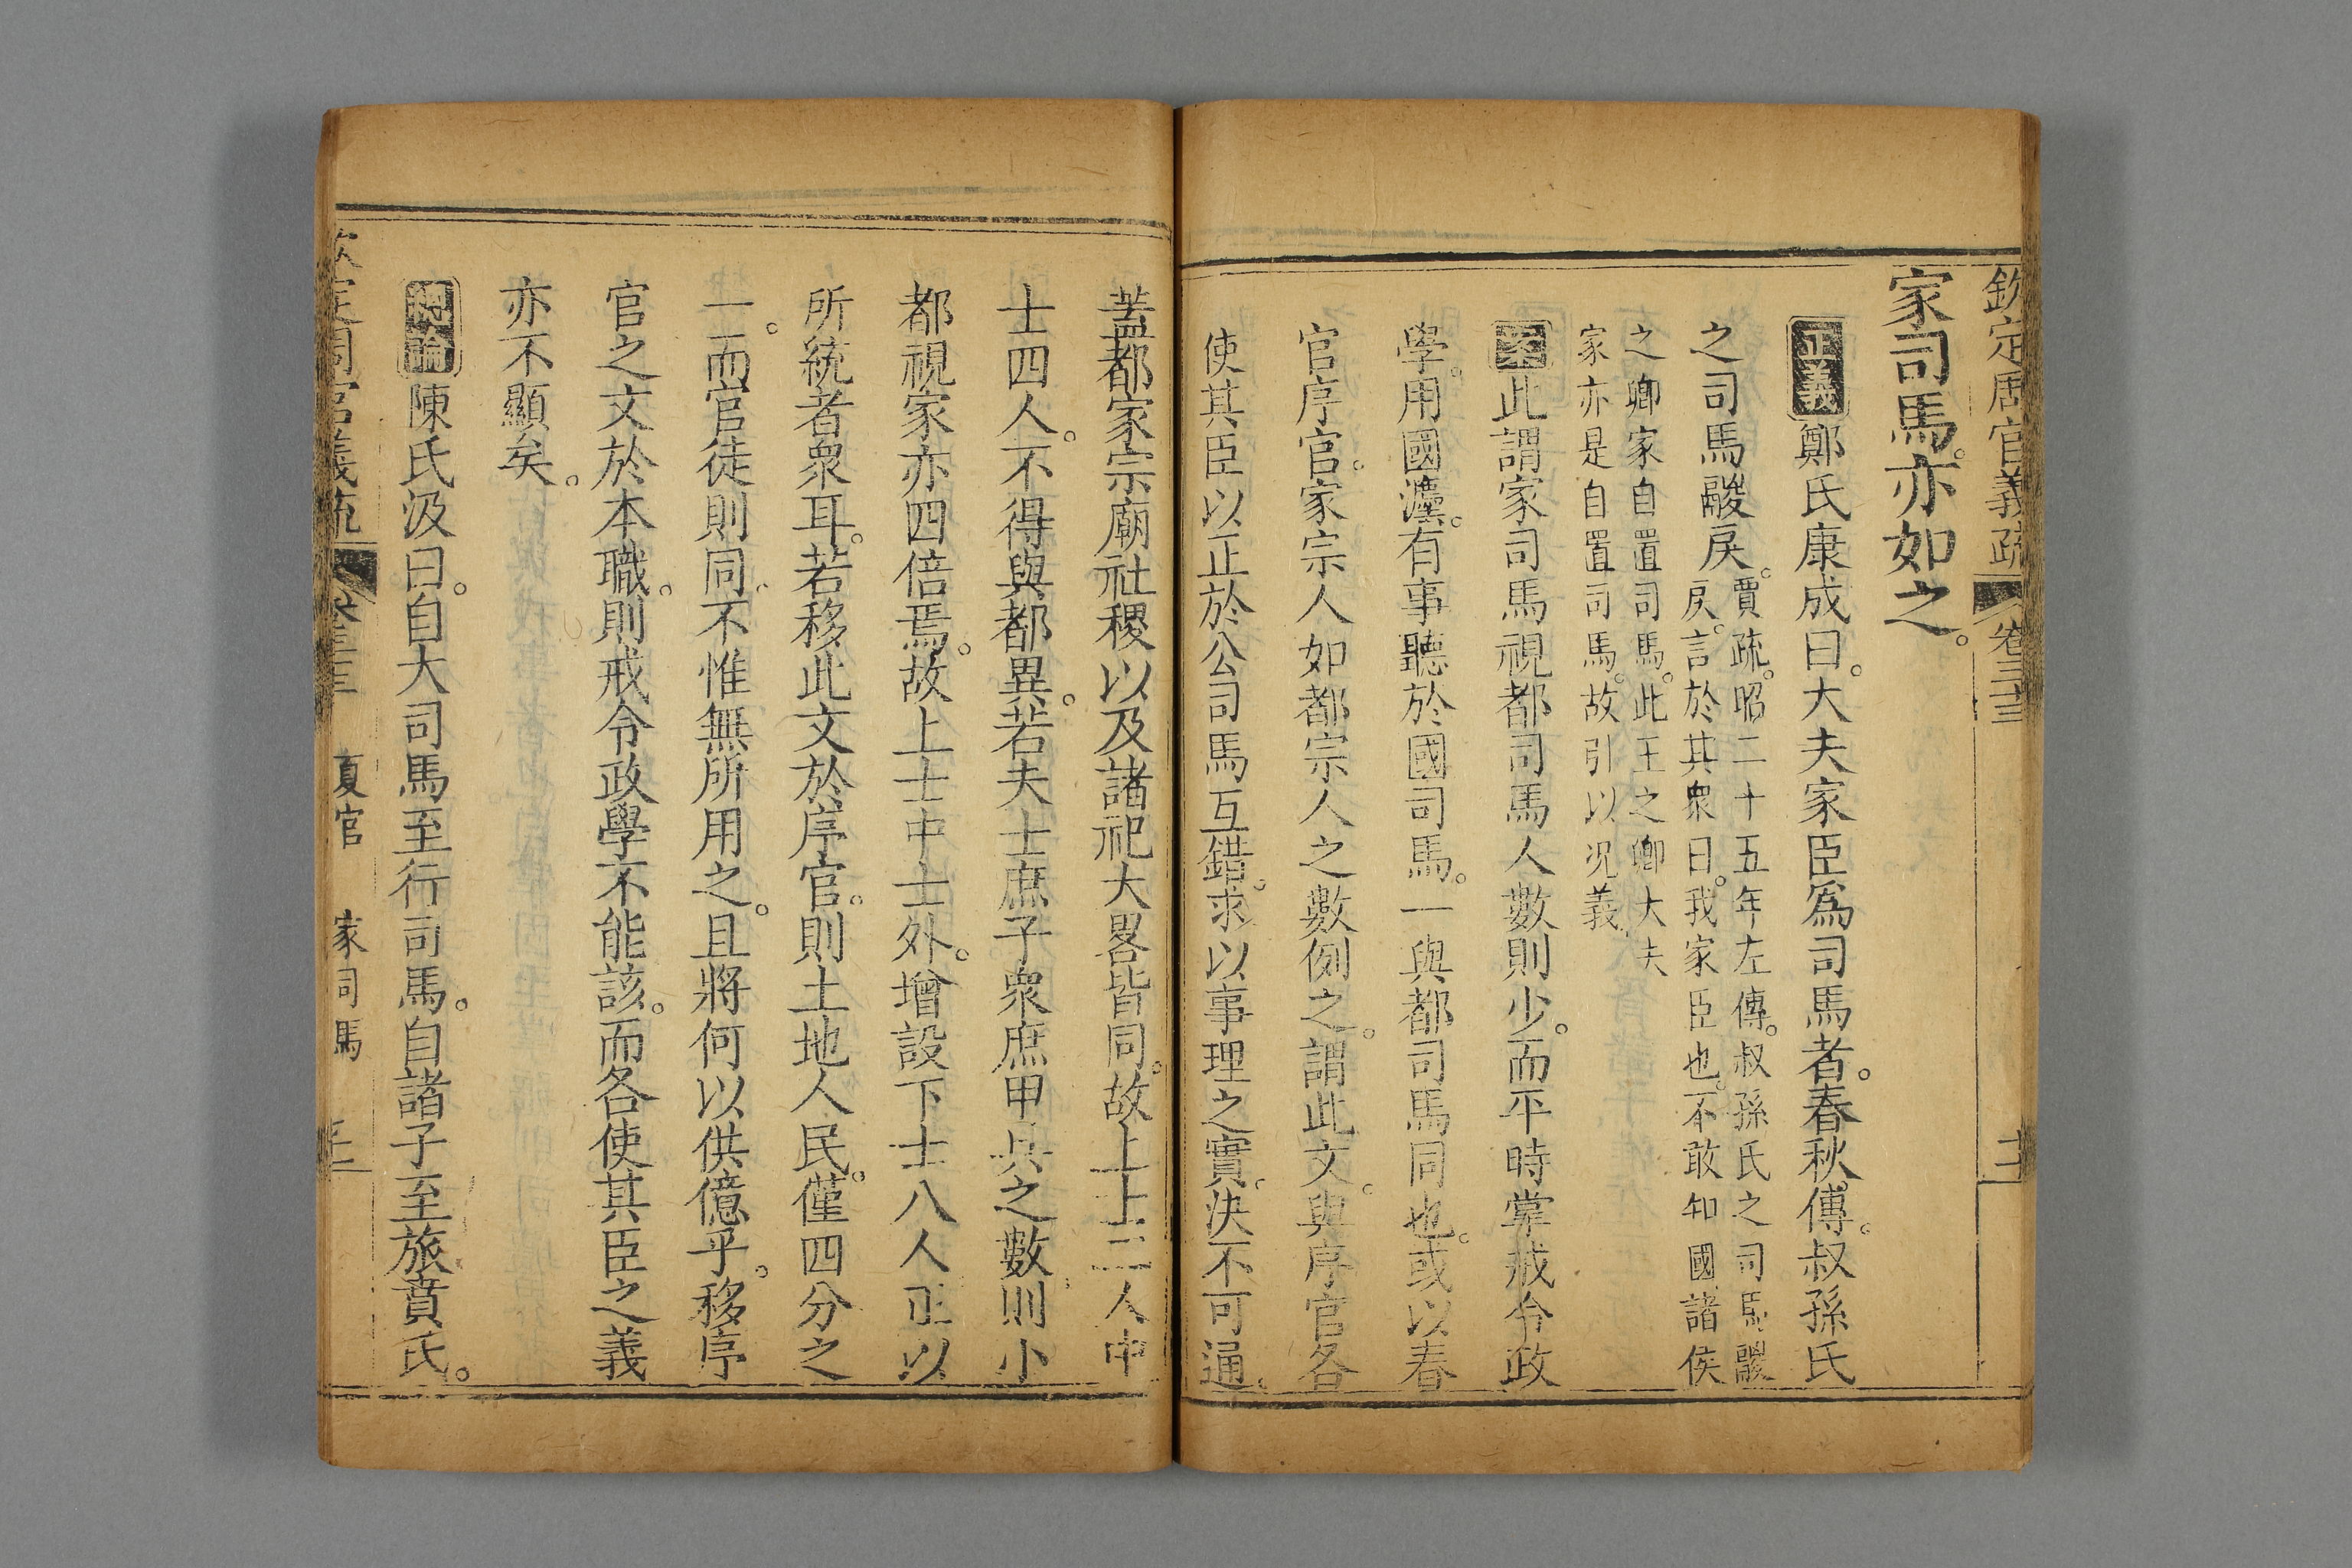 欽定周官義疏 卷三十三
家司馬。亦如之。
正義 鄭氏康成曰。大夫家臣爲司馬者。春秋傳。叔孫氏
之司馬鬷戾。賈疏。昭二十五年左傳。叔孫氏之司馬鬷
戾。言於其衆曰。我家臣也。不敢知國。諸侯
之卿家自置司馬。此王之卿大夫
家亦是自置司馬。故引以况義。
案 此謂家司馬視都司馬人數則少。而平時掌戒令政
學。用國灋。有事聽於國司馬。一與都司馬同也。或以春
官序官。家宗人如都宗人之數例之。謂此文。與序官各
使其臣以正於公司馬互錯。求以事理之實。決不可通。
蓋都家宗廟社稷以及諸祀大畧皆同。故上士二人中
士四人。不得與都異。若夫士庶子衆庶甲兵之數。則小
都視家亦四倍焉。故上士中士外。增設下士八人正以
所統者衆耳。若移此文於序官。則土地人民。僅四分之
一。而官徒則同。不惟無所用之。且將何以供億乎。移序
官之文於本職。則戒令政學不能該。而各使其臣之義
亦不顯矣。
總論 陳氏汲曰。自大司馬至行司馬。自諸子至旅賁氏。
欽定周官義疏 卷三十三 夏官 家司馬